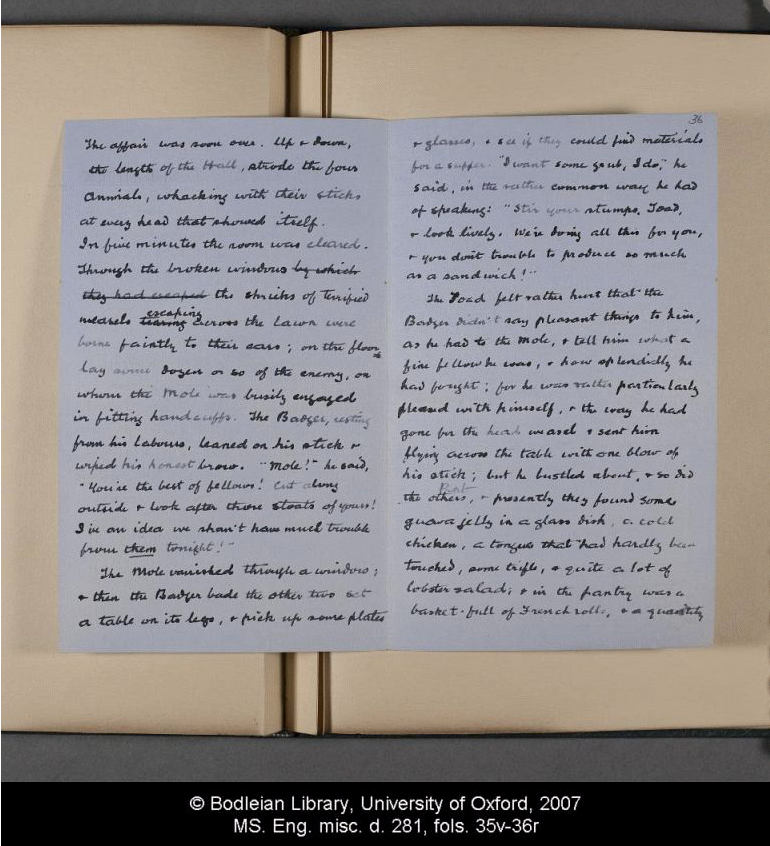 The affair was soon over. Up & down,
the length of the Hall, strode the four
Animals, whacking with their sticks
at every head that showed itself.
In five minutes the room was cleared.
Through the broken windows by which
they had escaped the shrieks of terrified
escaping
weasels tearing across the lawn were
borne faintly to their ears; on the floor
lay some dozen or so of the enemy, on
whom the Mole was busily engaged
in fitting handcuffs. The Badger, resting
from his labours, leaned on his stick &
wiped his honest brow. "Mole!" he said,
"You're the best of fellows! Cut along
outside & look after those stoats of yours!
I've an idea we shan't have much trouble
from them tonight!"
The Mole vanished through a window;
& then the Badger bade the other two set
a table on its legs, & pick up some plates
36
& glasses, & see if they could find materials
for a supper. "I want some grub, I do," he
said, in the rather common way he had
of speaking: "Stir your stumps, Toad,
& look lively. We're doing all this for you,
& you don't trouble to produce so much
as a sandwich!"
The Toad felt rather hurt that the
Badger didn't say pleasant things to him,
as he had to the Mole, & tell him what a
fine fellow he was, & how splendidly he
had fought; for he was rather particularly
pleased with himself, & the way he had
gone for the head weasel & sent him
flying across the table with one blow of
his stick; but he bustled about, & so did
the others, & presently they found some
guava jelly in a glass dish, a cold
chicken, a tongue that had hardly been
touched, some trifle, & quite a lot of
lobster salad; & in the pantry was a
basket-full of French rolls, & a quantity
© Bodleian Library, University of Oxford, 2007
MS. Eng. misc. d. 281, fols. 35v-36r